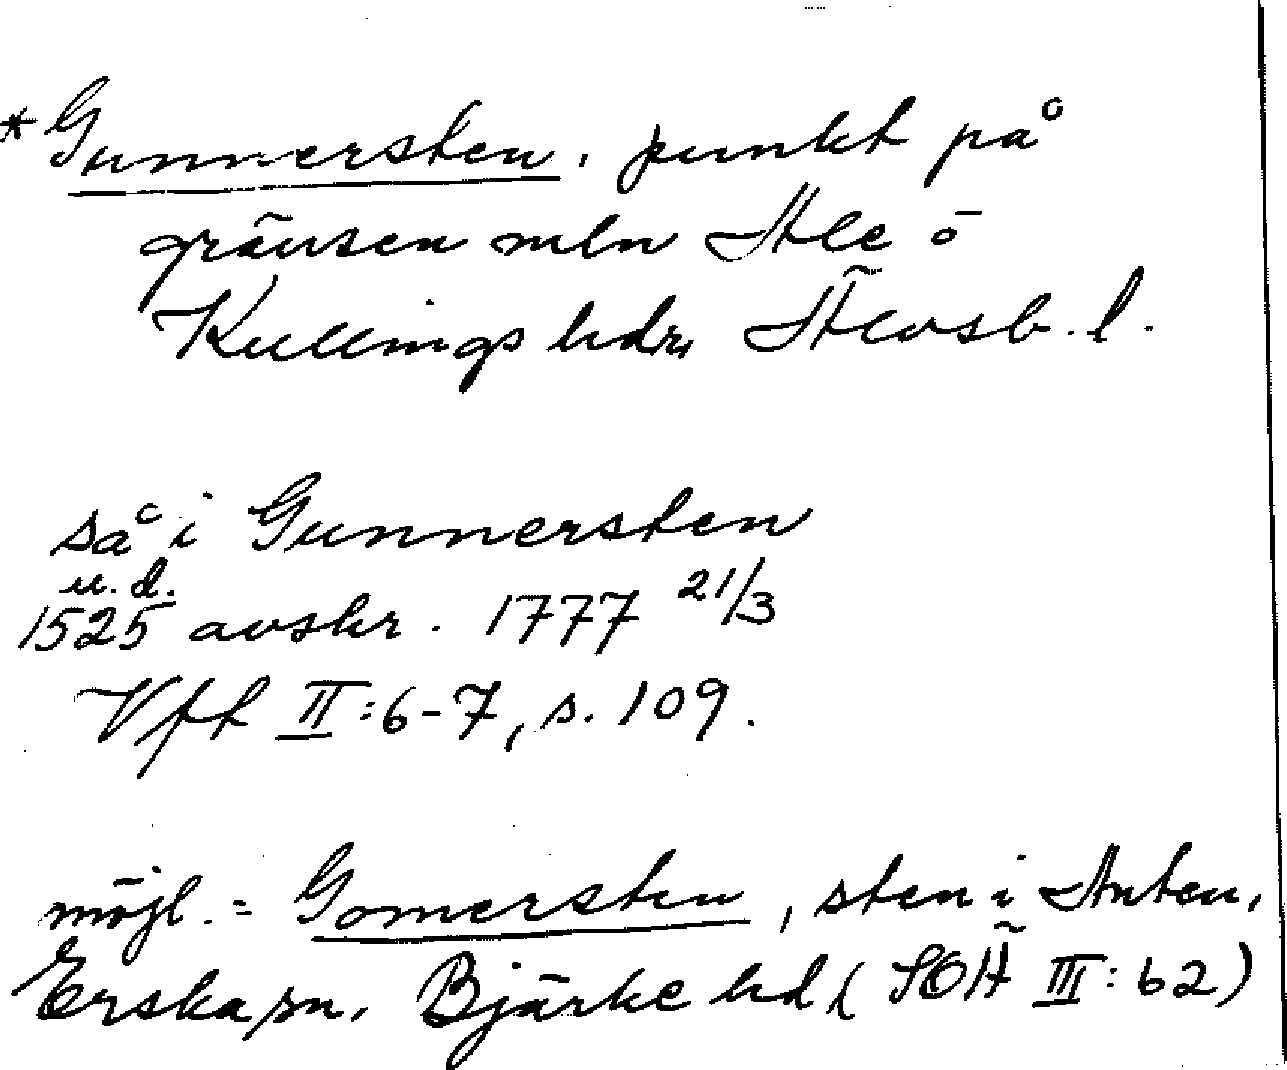 *Gunnersten, punkt på
gränsen mln Ale ö
Kullings hdr, Älvsb. l.
så i Gunnersten
u. d.
1525 avskr. 1777 21/3
Vft II:6-7, s. 109.
möjl. = Gomersten, sten i Anten,
Erska sn, Bjärke hd (SOÄ III: 62)